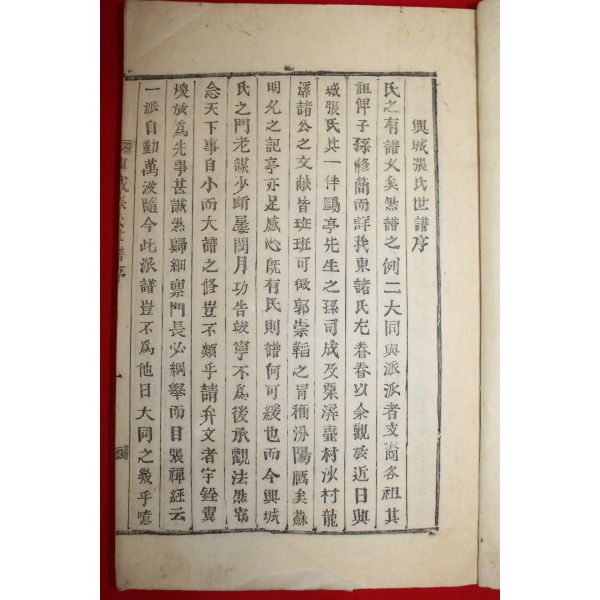 興城張氏世譜序
氏之有譜久矣然譜之例二大同與派派者支裔各祖其
祖俾子孫修簡而詳我東諸氏尤眷眷以余觀於近日興
城張氏其一伴鷗亭先生之孫司成及栗溪壷村沙村龍
溪諸公之文献皆班班可徵郭崇韜之冒稱汾陽陋矣蘇
明允之記亭亦足感心旣有氏則譜何可緩也而今興城
氏之門老謀少斷屢閱月功告竣寧不爲後承觀法然窃
念天下事自小而大譜之修豈不類乎請弁文者宇銓翼
煥於爲先事甚誠然歸細禀門長必綱擧而目張禪經云
一派自動萬波隨今此派譜豈不爲他日大同之幾乎噫
城張氏世譜序
一